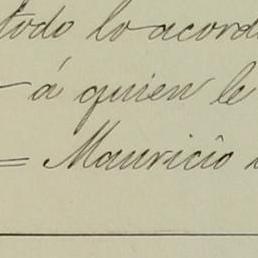 todo lo acord
- á quien le
= Mauricio